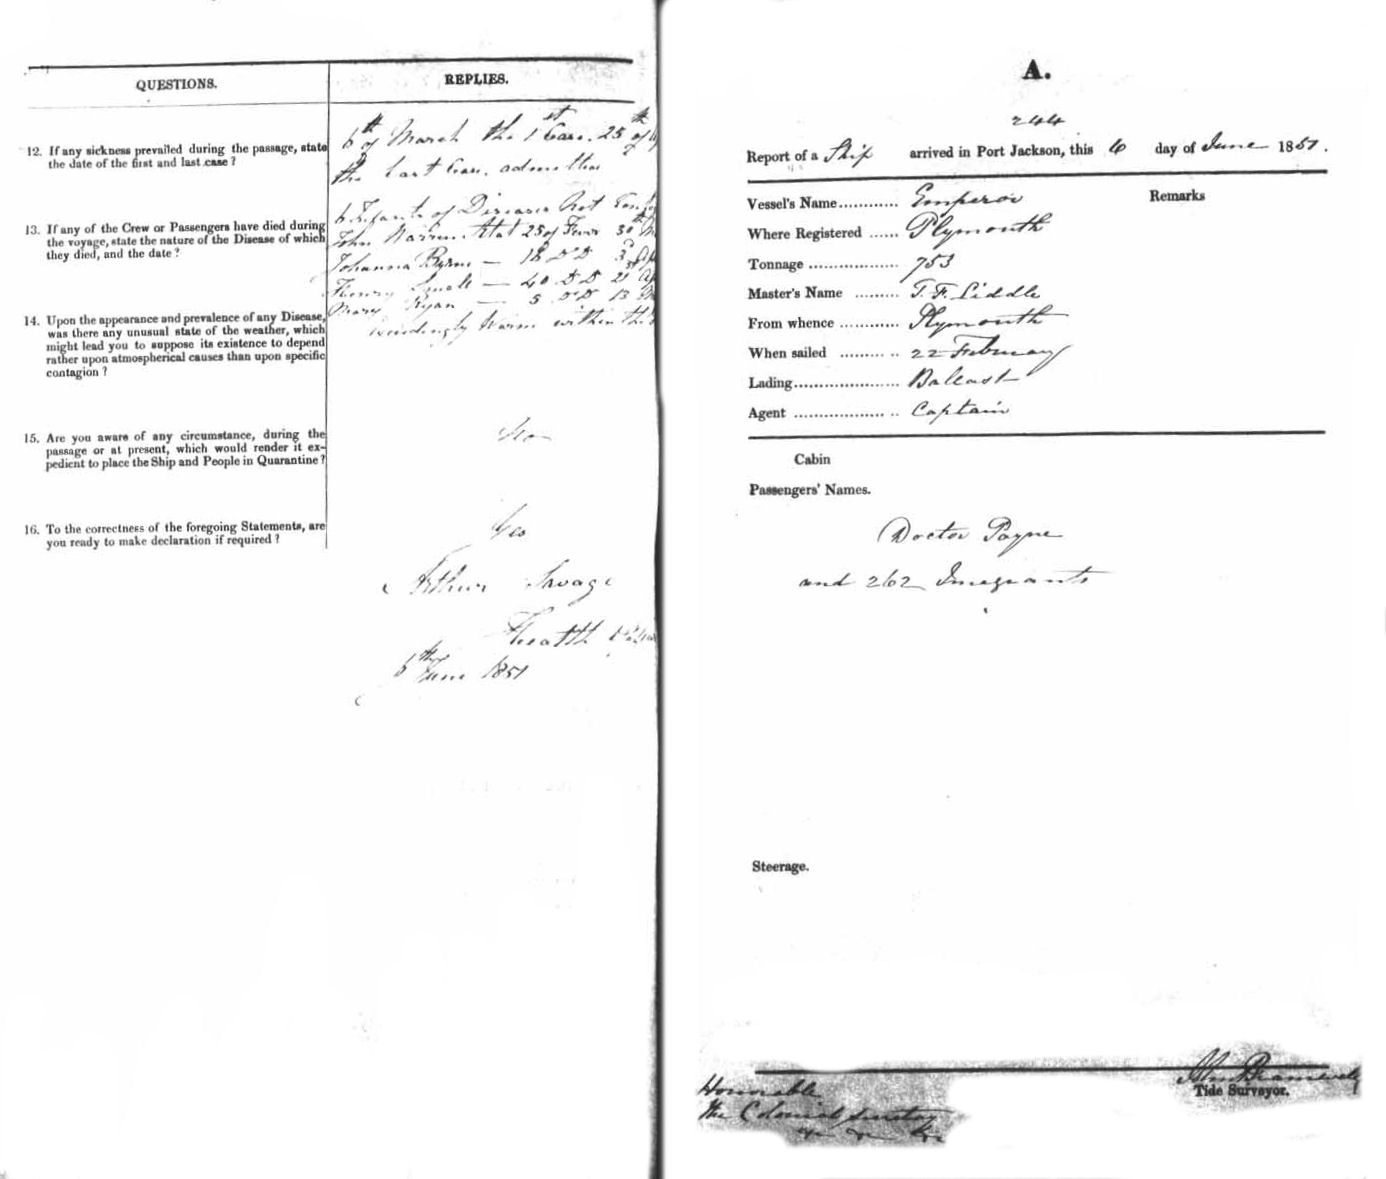 QUESTIONS.
REPLIES.
12. If any sickness prevailed during the passage, state
the date of the first and last case ?
6th of March the 1st Case. 25th of
the last Case. admitted
13. If any of the Crew or Passengers have died during
the voyage, state the nature of the Disease of which
they died, and the date ?
6 Infants of Diseases Not
John Warren Ætat 25 of Fever 30th
Johanna Byrne — 18 Do Do 3d
Henry Small — 40 Do Do 21
Mary Ryan — 5 Do Do 13
14. Upon the appearance and prevalence of any Disease,
was there any unusual state of the weather, which
might lead you to suppose its existence to depend
rather upon atmospherical causes than upon specific
contagion ?
Warm within the
15. Are you aware of any circumstance, during the
passage or at present, which would render it ex-
pedient to place the Ship and People in Quarantine ?
No
16. To the correctness of the foregoing Statements, are
you ready to make declaration if required ?
Yes
Arthur Savage
Health
6th June 1851
A.
244
Report of a Ship arrived in Port Jackson, this 6 day of June 1851.
Vessel's Name............ Emperor
Remarks
Where Registered ...... Plymouth
Tonnage .................. 753
Master's Name ......... T. F. Liddle
From whence ............ Plymouth
When sailed ......... .. 22 February
Lading..................... Ballast
Agent .................. .. Captain
Cabin
Passengers' Names.
Doctor Payne
and 262 Imegrants
Steerage.
Honorable
The Colonial Secretary
John
Tide Surveyor.